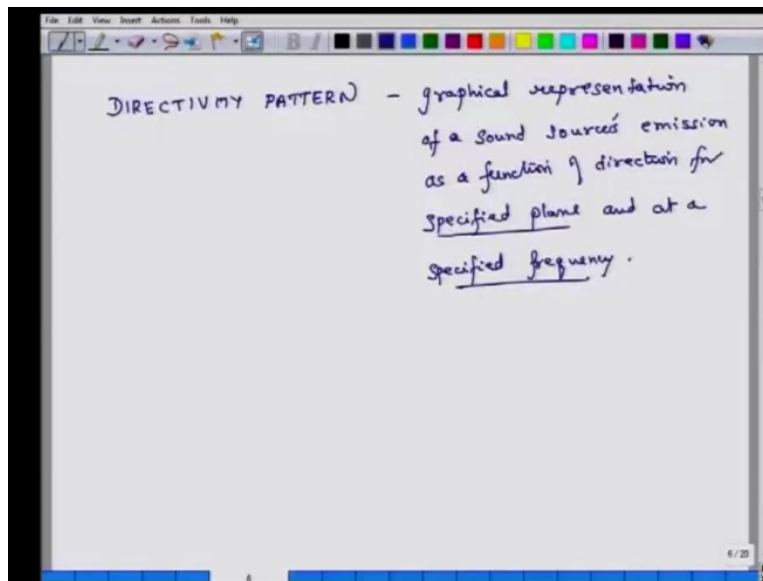 File Edit View Insert Actions Tools Help
DIRECTIVITY PATTERN - graphical representation
of a sound source's emission
as a function of direction for
specified plane and at a
specified frequency.
6/20